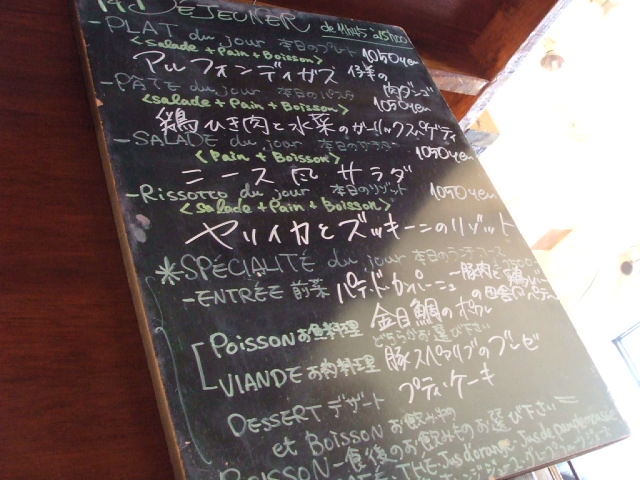 DEJEUNER de 11h45 à 15h00
-PLAT du jour 本日のプレート 1050yen
<salade+Pain+Boisson>
アルフォンディガス 仔羊の肉ダンゴ
-PÂTE du jour 本日のパスタ 1050yen
<salade+Pain+Boisson>
鶏ひき肉と水菜のガーリックスパゲティ
-SALADE du jour 本日のサラダ 1050yen
<Pain+Boisson>
ニース風サラダ
-Rissotto du jour 本日のリゾット 1050yen
<salade+Pain+Boisson>
ヤリイカとズッキーニのリゾット
*SPÉCIALITÉ du jour 本日のランチコース
-ENTRÉE 前菜 パテ・ド・カンパーニュ ~豚肉と鶏レバーの田舎風パテ~
Poisson お魚料理 金目鯛のポワレ
どちらかお選び下さい
VIANDE お肉料理 豚スペアリブのブレゼ
DESSERT デザート プティケーキ
et Boisson お飲み物
BOISSON-食後のお飲みものお選び下さい=
THE, Jus d'orange, Jus de pamplemousse